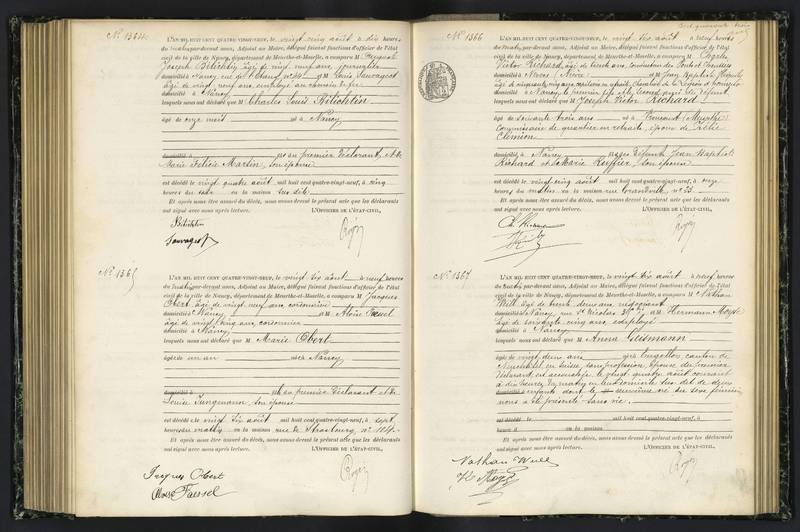 N° 1364.
L'AN MIL HUIT CENT QUATRE-VINGT-NEUF, le vingt cinq août à dix heures
du matin par-devant nous, Adjoint au Maire, délégué faisant fonctions d'officier de l'état
civil de la ville de Nancy, département de Meurthe-et-Moselle, a comparu M
Joseph âgé de vingt neuf ans, journalier
domicilié à Nancy, rue n° et M Louis Sauvageot
âgé de vingt neuf ans, employé au chemin de fer
domicilié à Nancy
lesquels nous ont déclaré que Charles Louis
âgé de onze mois né à Nancy
domicilié à du premier déclarant, et de
Marie Félicie Martin, son épouse
est décédé le vingt quatre août mil huit cent quatre-vingt-neuf, à cinq
heures du soir en la maison sus dite
Et après nous être assuré du décès, nous avons dressé le présent acte que les déclarants
ont signé avec nous après lecture. L'OFFICIER DE L'ÉTAT-CIVIL,
Sauvageot
N° 1365
L'AN MIL HUIT CENT QUATRE-VINGT-NEUF, le vingt six août à neuf heures
du matin par-devant nous, Adjoint au Maire, délégué faisant fonctions d'officier de l'état
civil de la ville de Nancy, département de Meurthe-et-Moselle, a comparu M Jacques
Obert, âgé de vingt neuf ans, cordonnier
domicilié à Nancy et M Aloïse
âgé de vingt cinq ans, cordonnier
domicilié à Nancy
lesquels nous ont déclaré que Marie Obert
âgée de un an née à Nancy
domicilié à du premier déclarant et de
Louise Jungmann, son épouse
est décédée le vingt six août mil huit cent quatre-vingt-neuf, à sept
heures du matin en la maison rue de Strasbourg, n°
Et après nous être assuré du décès, nous avons dressé le présent acte que les déclarants
ont signé avec nous après lecture. L'OFFICIER DE L'ÉTAT-CIVIL,
Jacques Obert
N° 1366
L'AN MIL HUIT CENT QUATRE-VINGT-NEUF, le vingt six août à neuf heures
du matin par-devant nous, Adjoint au Maire, délégué faisant fonctions d'officier de l'état
civil de la ville de Nancy, département de Meurthe-et-Moselle, a comparu M
Victor Richard, âgé de trente ans, conducteur des Ponts et Chaussées
domicilié à Nevers (Nièvre) et M Jean Baptiste
âgé de cinquante cinq ans, capitaine en retraite, chevalier de la Légion d'honneur
domicilié à Nancy, le premier fils et le second ami du défunt
lesquels nous ont déclaré que Joseph Victor Richard
âgé de soixante trois ans né à (Meurthe)
Commissaire de quartier en retraite, époux de Zélie
domicilié à Nancy fils des défunts Jean Baptiste
Richard et de Marie son épouse
est décédé le vingt cinq août mil huit cent quatre-vingt-neuf, à onze
heures du matin en la maison rue Grandville n° 23
Et après nous être assuré du décès, nous avons dressé le présent acte que les déclarants
ont signé avec nous après lecture. L'OFFICIER DE L'ÉTAT-CIVIL,
N° 1367
L'AN MIL HUIT CENT QUATRE-VINGT-NEUF, le vingt six août à neuf heures
du matin par-devant nous, Adjoint au Maire, délégué faisant fonctions d'officier de l'état
civil de la ville de Nancy, département de Meurthe-et-Moselle, a comparu M Nathan
Will, âgé de trente deux ans, négociant
domicilié à Nancy, rue St Nicolas et M Hermann Moyse
âgé de soixante cinq ans, employé
domicilié à Nancy
lesquels nous ont déclaré que Anna Gutmann
âgée de vingt deux ans canton de
Neuchâtel, en Suisse, sans profession, épouse du premier
déclarant est accouchée le vingt quatre août courant
à dix heures du matin en leur domicile sus dit de deux
enfants dont le deuxième né du sexe féminin
nous a été présenté sans vie.
est décédé le mil huit cent quatre-vingt-neuf, à
heures d en la maison
Et après nous être assuré du décès, nous avons dressé le présent acte que les déclarants
ont signé avec nous après lecture. L'OFFICIER DE L'ÉTAT-CIVIL,
Nathan Will